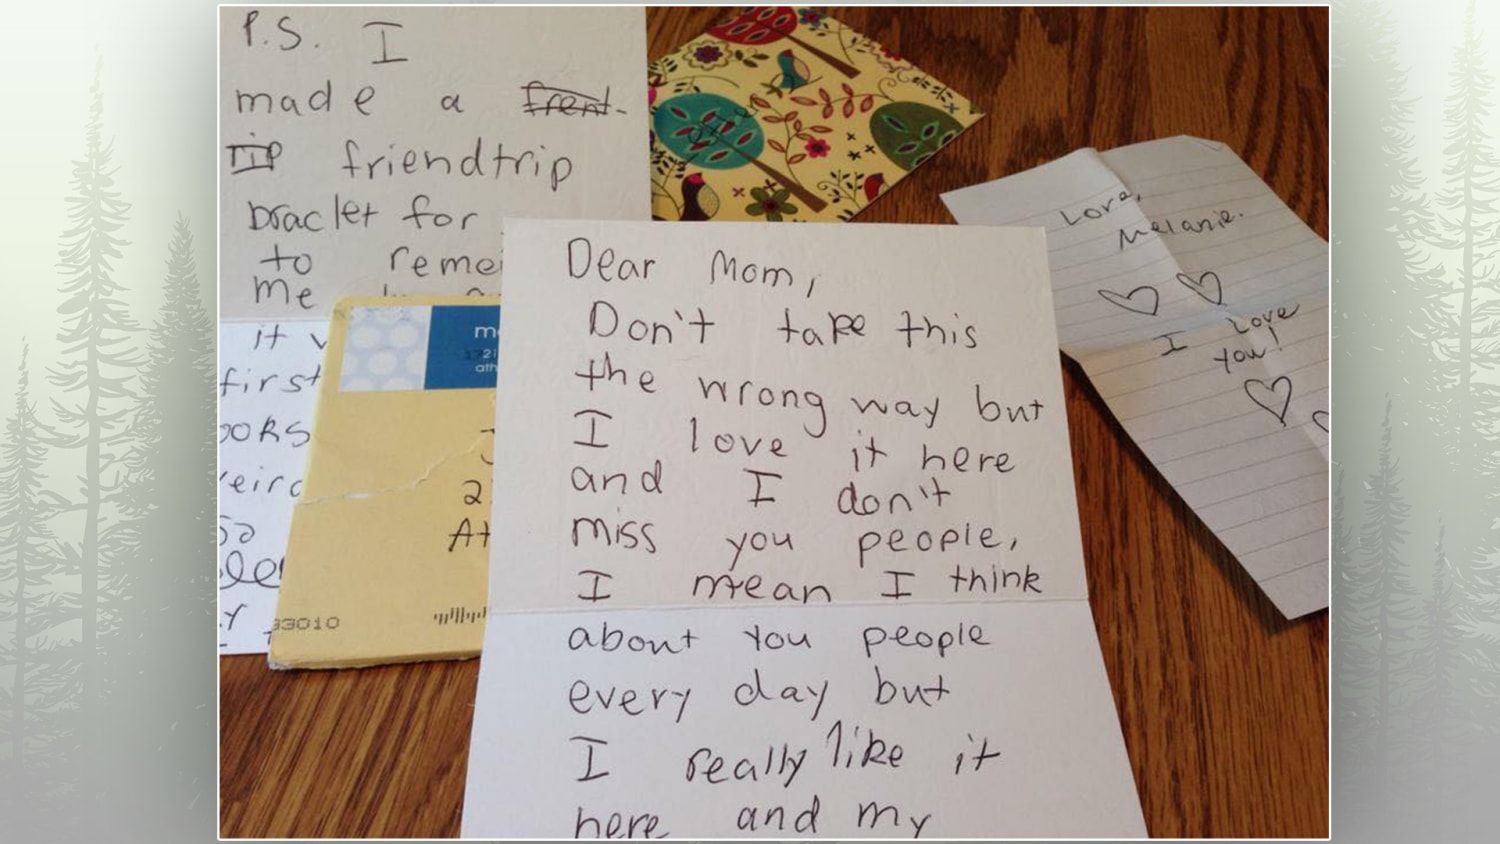 P.S. I
made a frent-
tip friendtrip
braclet for
to
me
it
first
So
33010
2
Dear Mom,
Don't take this
the wrong way but
I love it here
and I don't
miss you people,
I mean I think
about you people
every day but
I really like it
here and my
Love,
Melanie.
I Love
you!